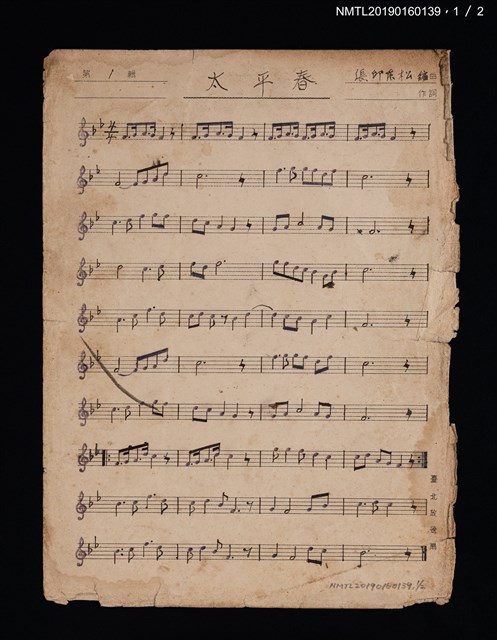 NMTL20190160139，1 / 2
第 1 輯
太 平 春
張邱東松 編曲
作詞
臺北放送局
NMTL20190160139.1/2